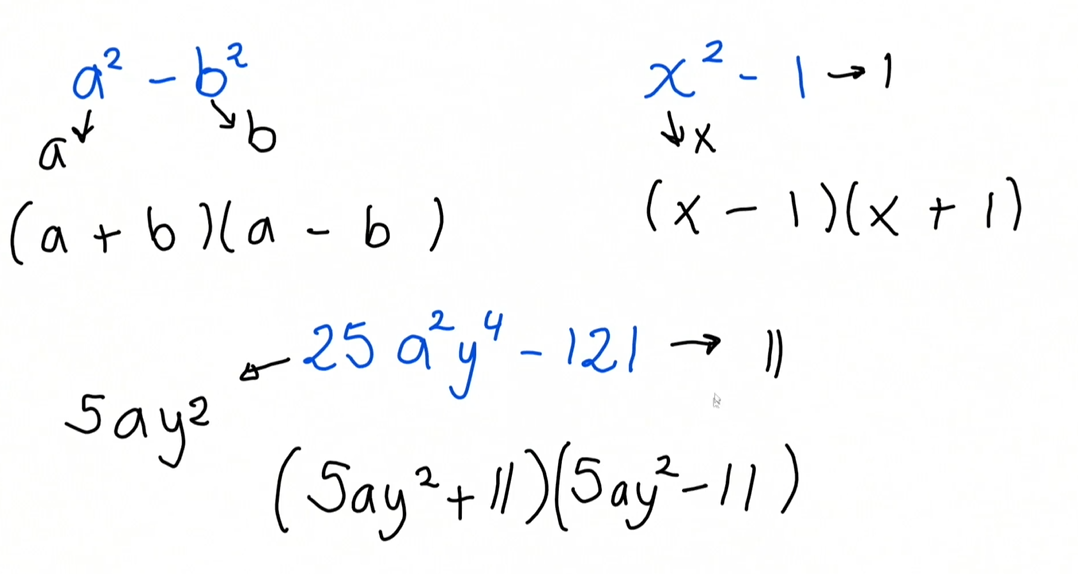 a² - b²
a b
(a + b)(a - b)
x² - 1 → 1
x
(x - 1)(x + 1)
25 a²y⁴ - 121 → 11
5ay²
(5ay² + 11)(5ay² - 11)